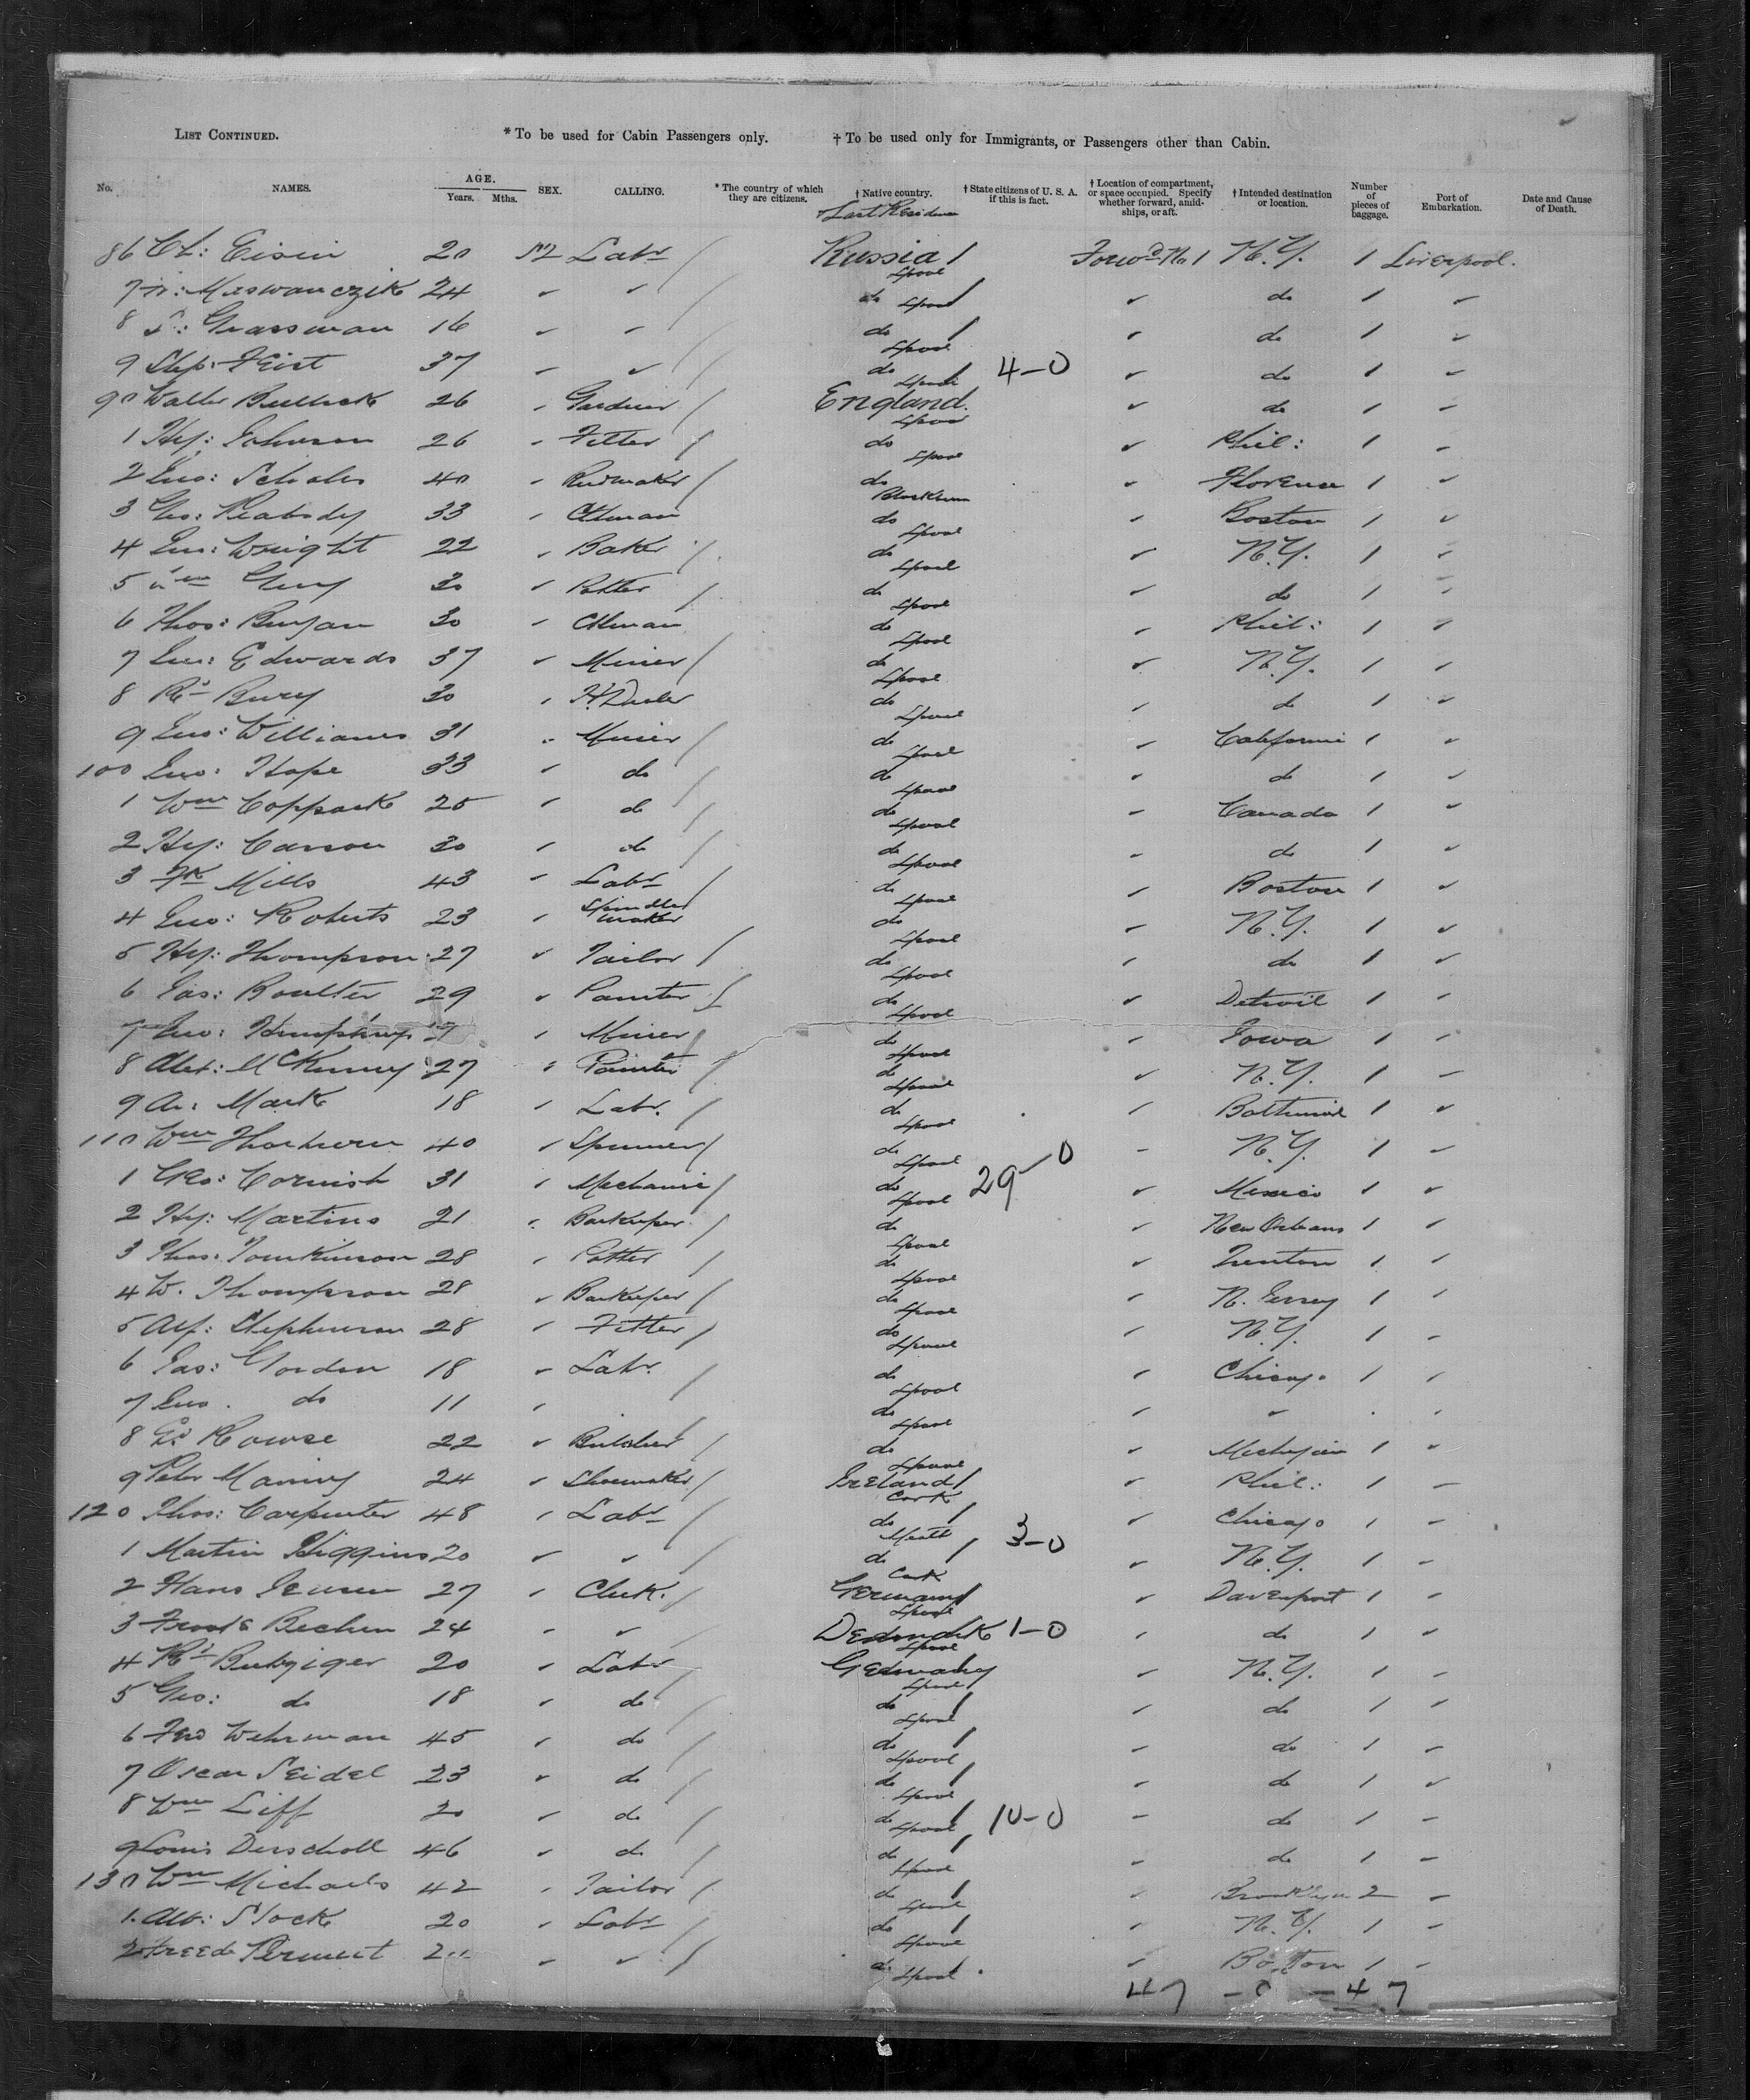 LIST CONTINUED. * To be used for Cabin Passengers only. † To be used only for Immigrants, or Passengers other than Cabin.
No. NAMES. AGE. Years. Mths. SEX. CALLING. * The country of which they are citizens. † Native country. † State citizens of U. S. A. if this is fact. † Location of compartment, or space occupied. Specify whether forward, amidships, or aft. † Intended destination or location. Number of pieces of baggage. Port of Embarkation. Date and Cause of Death.
Last Residence
86 Ch: Eisin 20 M Labr / Russia / Lpool Forwd No 1 N.Y. 1 Liverpool.
7 Maswanczik 24 ✓ ✓ / do Lpool / ✓ do 1 ✓
8 Grassman 16 ✓ ✓ / do / Lpool ✓ do 1 ✓
9 Step: Feist 37 ✓ ✓ / do / Lpool 4-0 ✓ do 1 ✓
90 Walter Bullock 26 ✓ Gardiner / England. Lpool ✓ do 1 ✓
1 Hy: Johnson 26 ✓ Fitter / do Lpool ✓ Phil: 1 ✓
2 Jno: Scholes 40 ✓ Reedmaker / do Blackburn ✓ Florence 1 ✓
3 Geo: Peabody 33 ✓ do Lpool ✓ Boston 1 ✓
4 Jno: Wright 22 ✓ Baker / do Lpool ✓ N.Y. 1 ✓
5 Wm Guy 30 ✓ Potter / do Lpool ✓ do 1 ✓
6 Thos: Bunyan 30 ✓ do Lpool ✓ Phil: 1 ✓
7 Jno: Edwards 37 ✓ Miner / do Lpool ✓ N.Y. 1 ✓
8 Rd Bury 30 ✓ do Lpool ✓ do 1 ✓
9 Jno: Williams 31 ✓ Miner / do Lpool ✓ California 1 ✓
100 Jno: Hope 33 ✓ do / do Lpool ✓ do 1 ✓
1 Wm Coppack 25 ✓ do / do Lpool ✓ Canada 1 ✓
2 Hy: Carson 30 ✓ do / do Lpool ✓ do 1 ✓
3 Fk Mills 43 ✓ Labr / do Lpool ✓ Boston 1 ✓
4 Jno: Roberts 23 ✓ Spindle maker do Lpool ✓ N.Y. 1 ✓
5 Hy: Thompson 27 ✓ Tailor / do Lpool ✓ do 1 ✓
6 Jas: Boulter 29 ✓ Painter / do Lpool ✓ Detroit 1 ✓
7 Jno: ✓ Miner / do Lpool ✓ Iowa 1 ✓
8 Alex: McKinney 27 ✓ Painter / do Lpool ✓ N.Y. 1 ✓
9 Mark 18 ✓ Labr. / do Lpool ✓ Baltimore 1 ✓
110 Wm 40 ✓ Spinner / do Lpool 29-0 ✓ N.Y. 1 ✓
1 Geo: Cornish 31 ✓ Mechanic / do Lpool ✓ Mexico 1 ✓
2 Hy: Martins 21 ✓ Barkeeper / do Lpool ✓ New Orleans 1 ✓
3 Thos: Tomkinson 28 ✓ Potter / do Lpool ✓ Trenton 1 ✓
4 W. Thompson 28 ✓ Barkeeper / do Lpool ✓ N. Jersey 1 ✓
5 Alf: Stephenson 28 ✓ Fitter / do Lpool ✓ N.Y. 1 ✓
6 Jas: Gordon 18 ✓ Labr. / do Lpool ✓ Chicago 1 ✓
7 Jno. do 11 ✓ do Lpool ✓ ✓
8 Rowse 22 ✓ Butcher / do Lpool ✓ Michigan 1 ✓
9 Peter Maning 24 ✓ Shoemaker / Ireland / Cork ✓ Phil: 1 ✓
120 Thos: Carpenter 48 ✓ Labr / do / Meath 3-0 ✓ Chicago 1 ✓
1 Martin Higgins 20 ✓ ✓ / do / Cork ✓ N.Y. 1 ✓
2 Hans Jensen 27 ✓ Clerk. / Germany / Lpool ✓ Davenport 1 ✓
3 24 ✓ ✓ Lpool 1-0 ✓ do 1 ✓
4 20 ✓ Labr / Germany Lpool ✓ N.Y. 1 ✓
5 Geo: do 18 ✓ do / do / Lpool ✓ do 1 ✓
6 Ferd Wehrman 45 ✓ do / do / Lpool ✓ do 1 ✓
7 Oscar Seidel 23 ✓ do / do / Lpool ✓ do 1 ✓
8 Wm Liff 20 ✓ do / do / Lpool 10-0 ✓ do 1 ✓
9 Louis Derscholl 46 ✓ do / do / Lpool ✓ do 1 ✓
130 Wm Michaels 42 ✓ Tailor / do / Lpool ✓ Brooklyn 2 ✓
1. Alb: Stock 20 ✓ Labr / do / Lpool ✓ N.Y. 1 ✓
2 ✓ ✓ / do Lpool ✓ Boston 1 ✓
47 - 0 - 47